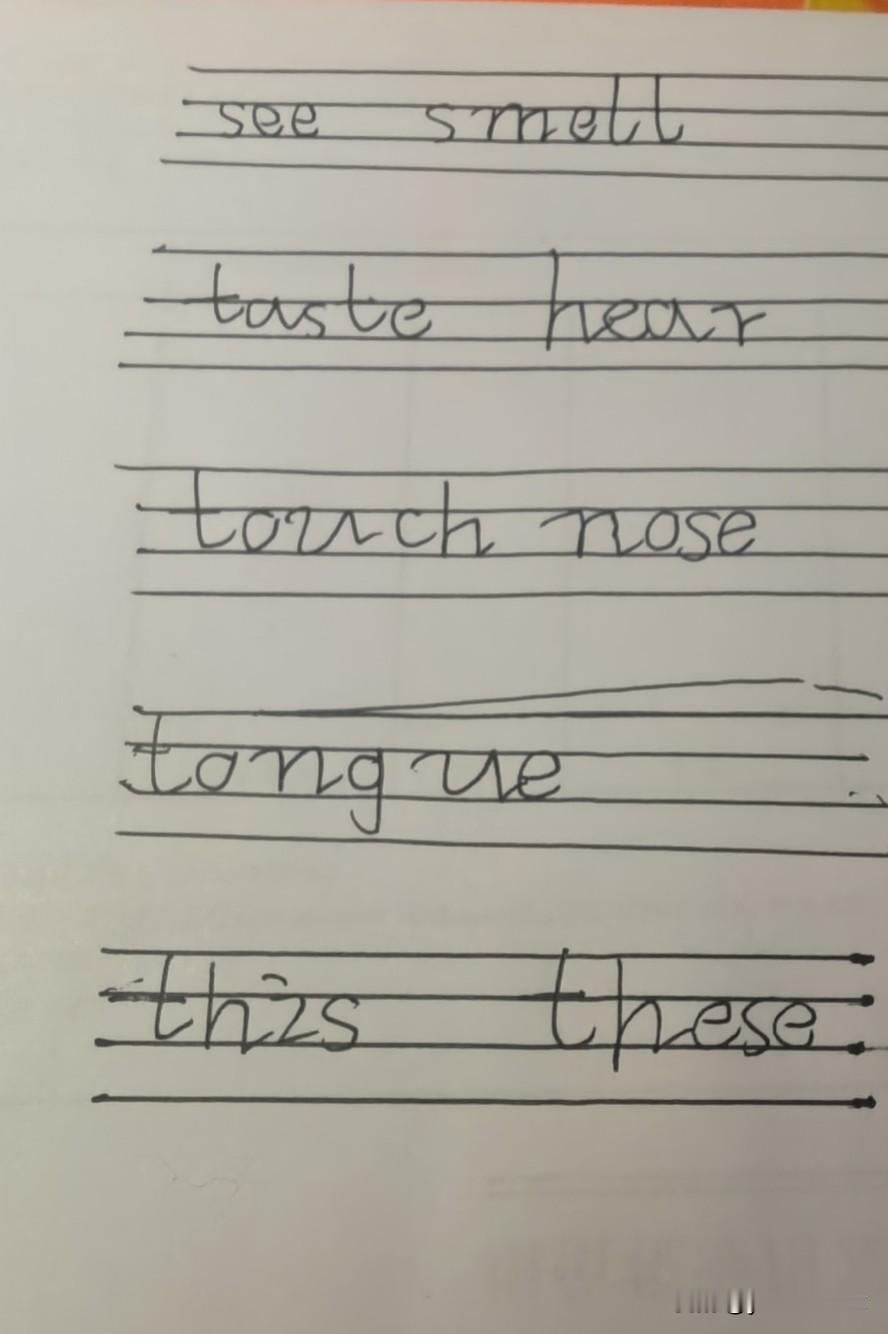 see smell
taste hear
touch nose
tongue
this these